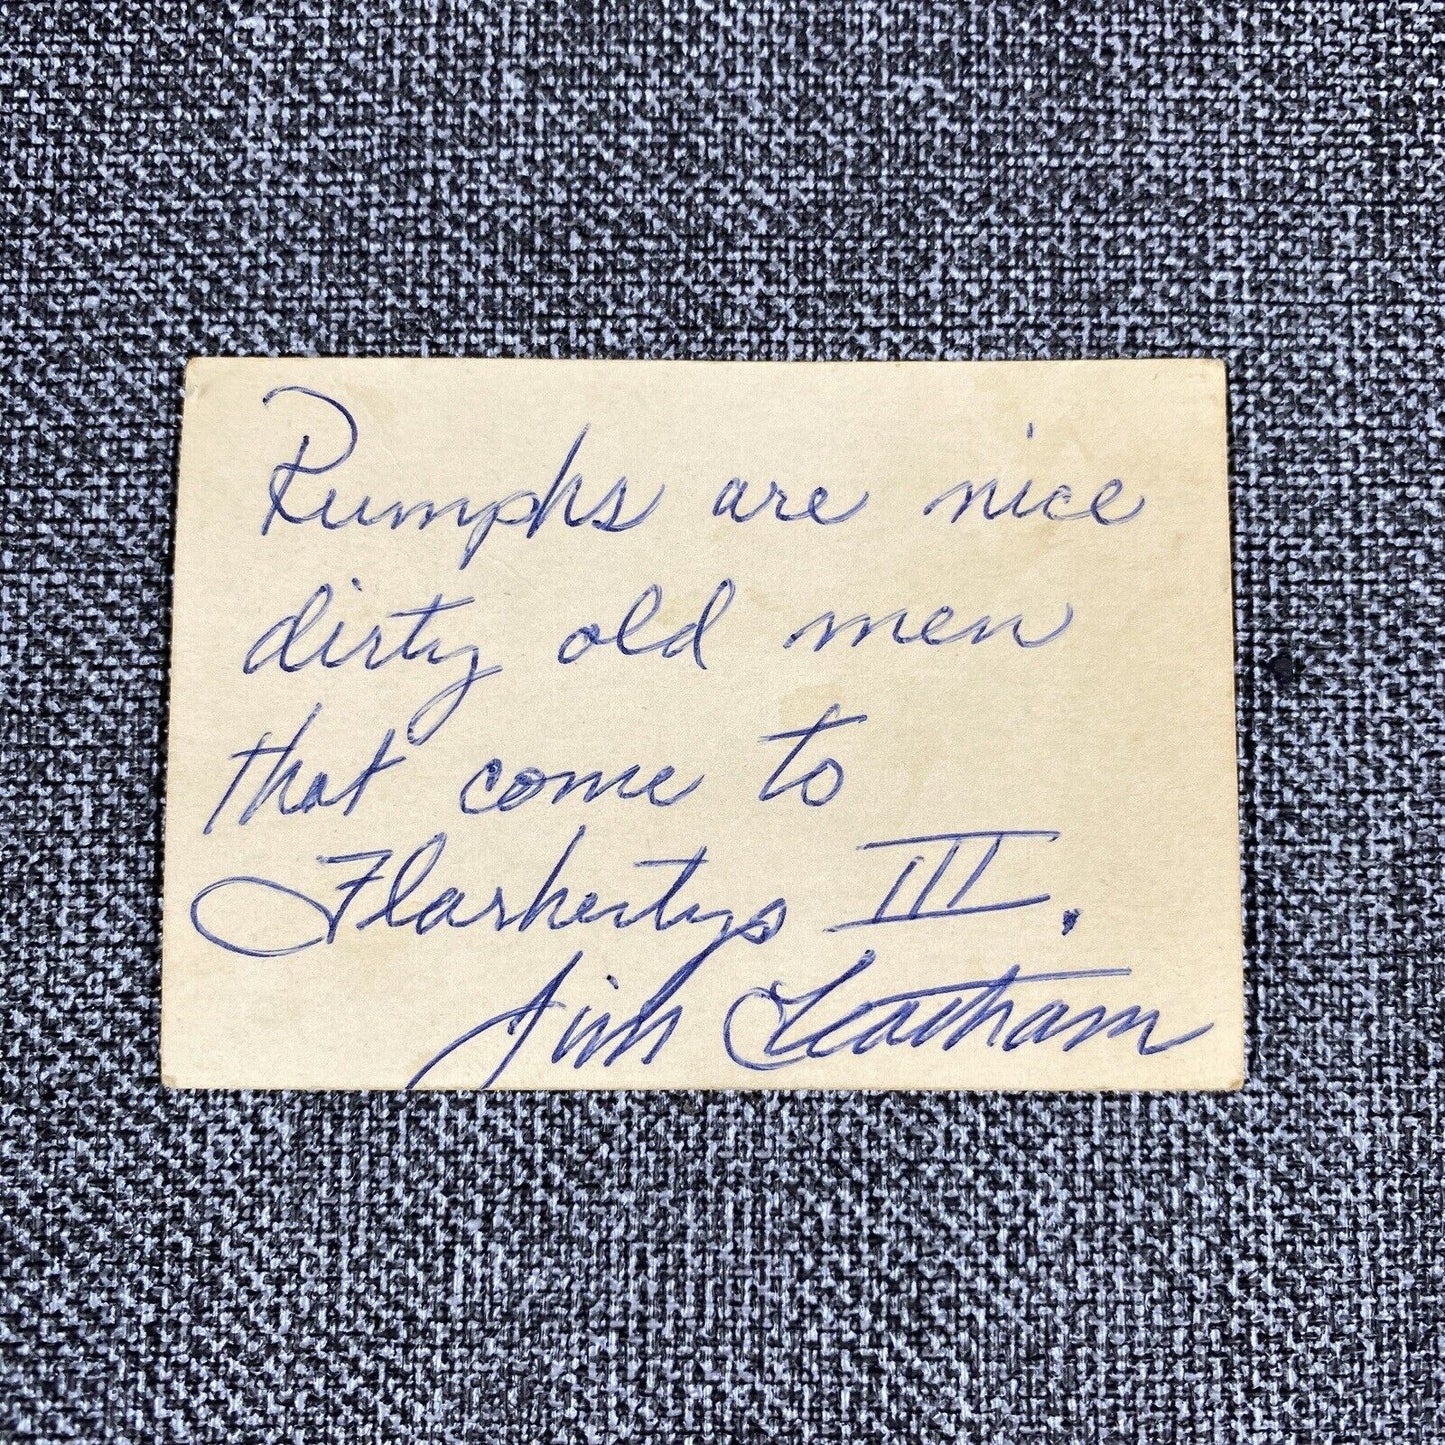 Rumphs are nice
dirty old men
that come to
Flarhertys III.
Jim Leatham